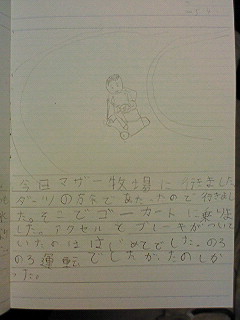 今日マザー牧場に行きました
ダーツの であたったので行きまし
た。そこでゴーカートに乗りま
した。アクセルとブレーキがついて
いたのははじめてでした。のろ
のろ運転でしたがたのしか
った。